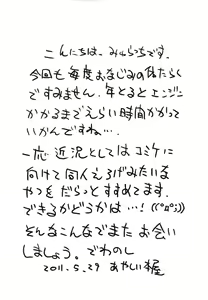 こんにちは、みゅらっちです。
今回も毎度おなじみの体たらく
ですみません。年とるとエンジン
かかるまでえらい時間かかって
いかんですね…
一応近況としてはコミケに
向けて同人えろげみたいな
やつをだらっとすすめてます。
できるかどうかは…!
そんなこんなでまたお会い
しましょう。でわのし
2011.5.29 あやしい